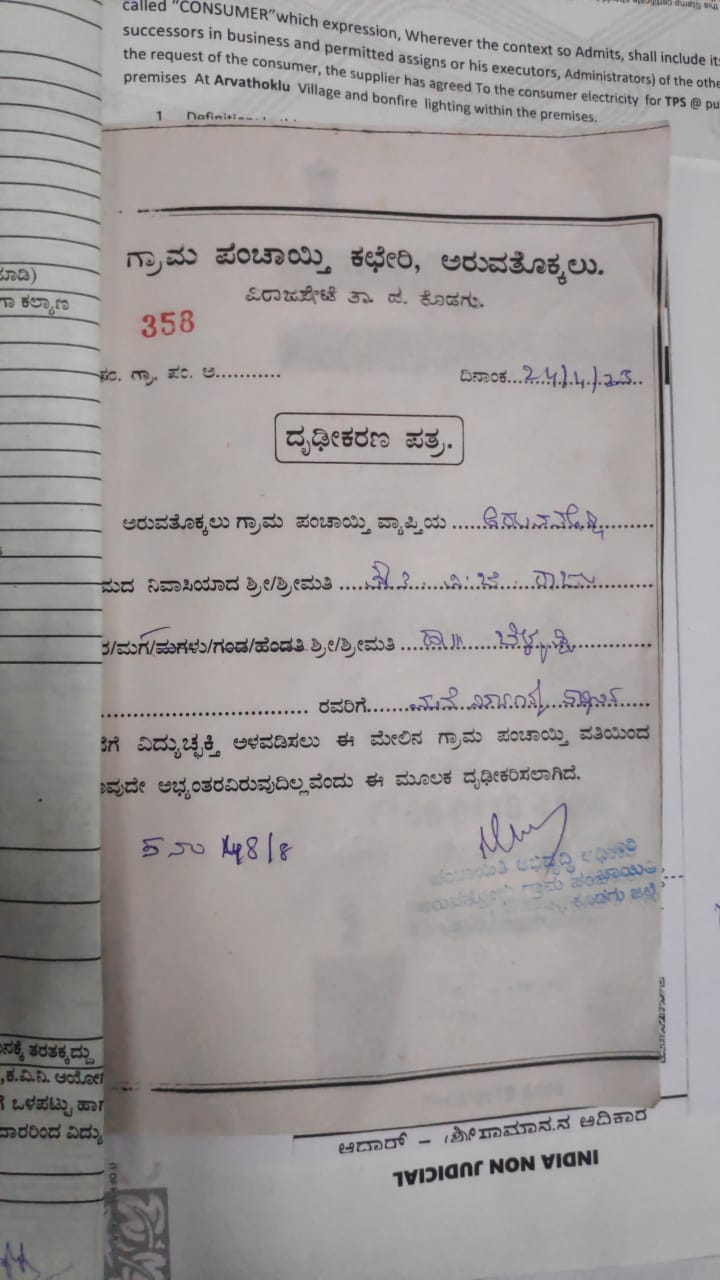 called "CONSUMER"which expression, Wherever the context so Admits, shall include its
successors in business and permitted assigns or his executors, Administrators) of the othe
the request of the consumer, the supplier has agreed To the consumer electricity for TPS @ pu
premises At Arvathoklu Village and bonfire lighting within the premises.
1
ಗ್ರಾಮ ಪಂಚಾಯ್ತಿ ಕಛೇರಿ, ಅರುವತೊಕ್ಕಲು.
ವಿರಾಜಪೇಟೆ ತಾ. ದ. ಕೊಡಗು.
358
ಸಂ. ಗ್ರಾ. ಪಂ. ಅ........... ದಿನಾಂಕ...24/4/23..
ದೃಢೀಕರಣ ಪತ್ರ.
ಅರುವತೊಕ್ಕಲು ಗ್ರಾಮ ಪಂಚಾಯ್ತಿ ವ್ಯಾಪ್ತಿಯ
ಮದ ನಿವಾಸಿಯಾದ ಶ್ರೀ/ಶ್ರೀಮತಿ
ರ/ಮಗ/ಮಗಳು/ಗಂಡ/ಹೆಂಡತಿ ಶ್ರೀ/ಶ್ರೀಮತಿ
ರವರಿಗೆ
ಗೆ ವಿದ್ಯುಚ್ಛಕ್ತಿ ಅಳವಡಿಸಲು ಈ ಮೇಲಿನ ಗ್ರಾಮ ಪಂಚಾಯ್ತಿ ವತಿಯಿಂದ
ವುದೇ ಅಭ್ಯಂತರವಿರುವುದಿಲ್ಲವೆಂದು ಈ ಮೂಲಕ ದೃಢೀಕರಿಸಲಾಗಿದೆ.
148/8
ಪಂಚಾಯತಿ ಅಭಿವೃದ್ಧಿ ಅಧಿಕಾರಿ
ಗ್ರಾಮ ಪಂಚಾಯಿತಿ
ಕೊಡಗು ಜಿಲ್ಲೆ
ಮಾಡಿ)
ಗಾ ಕಲ್ಯಾಣ
ನಕ್ಕೆ ತರತಕ್ಕದ್ದು
,ಕ.ವಿ.ನಿ. ಆಯೋಗ
ಗೆ ಒಳಪಟ್ಟು ಹಾಗ
ದಾರರಿಂದ ವಿದ್ಯು
INDIA NON JUDICIAL